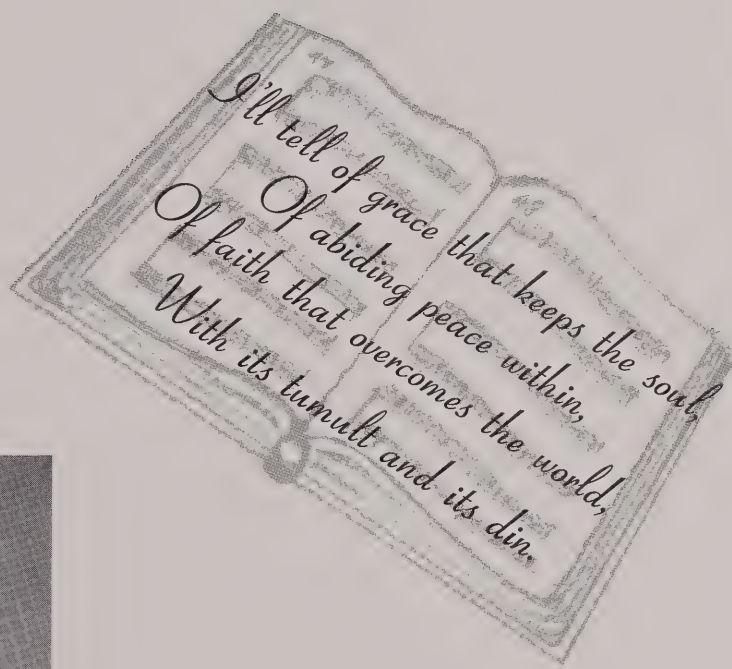 I'll tell of grace that keeps the soul,
Of abiding peace within,
Of faith that overcomes the world,
With its tumult and its din.